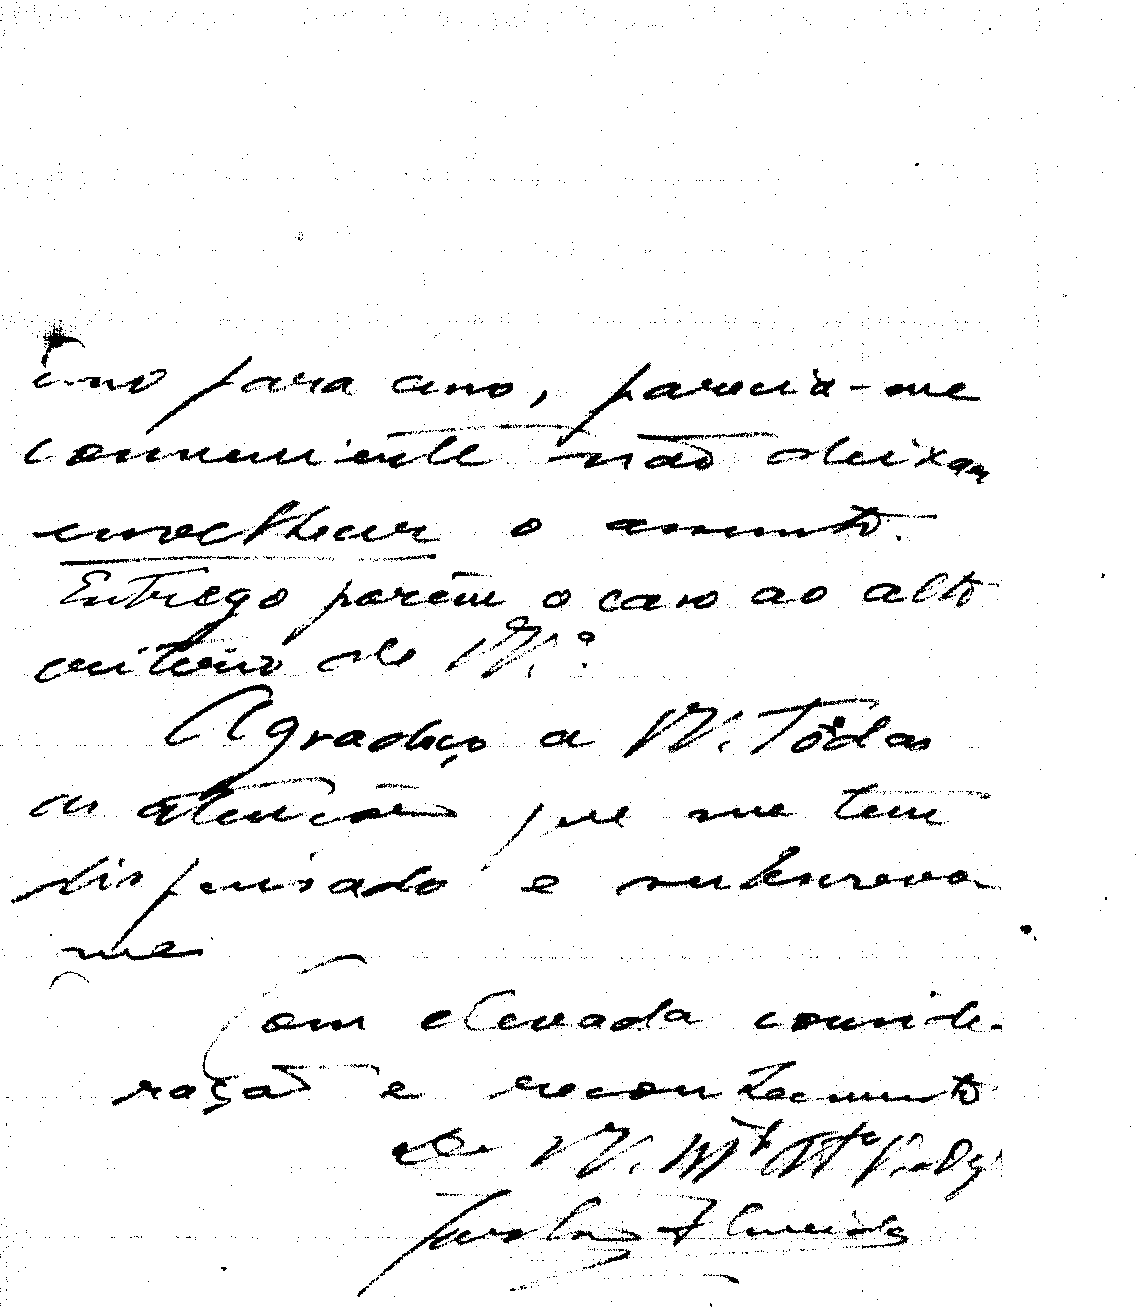 ano para ano, parecia-me
conveniente não deixar
envelhecer o assunto.
Entrego porém o caso ao alto
critério de V.ª
Agradeço a V. Tôdas
as atenções que me tem
dispensado e subscrevo
me
Com elevada conside-
ração e reconhecimento
de V. Mt
Almeida